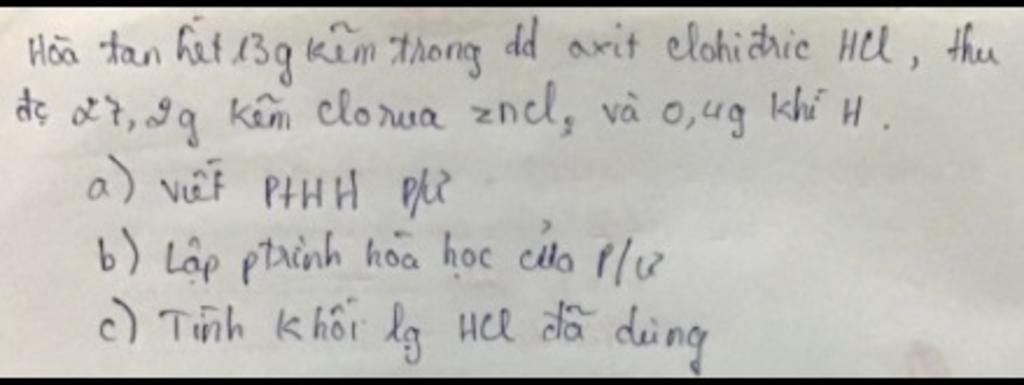 Hòa tan hết 13g kẽm trong dd axit clohiđric HCl, thu
đc 27,2g kẽm clorua zncl2 và 0,4g khí H.
a) viết PtHH p/ứ
b) Lập ptrình hóa học của p/ứ
c) Tính khối lg HCl đã dùng